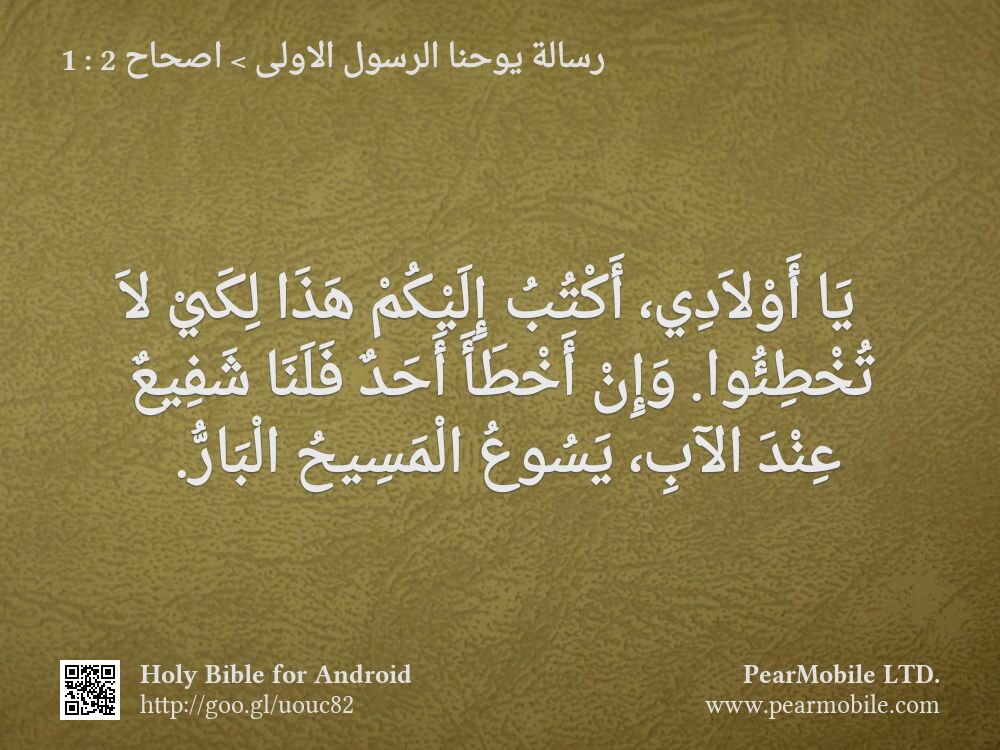 رسالة يوحنا الرسول الاولى > اصحاح 2 : 1
يَا أَوْلاَدِي، أَكْتُبُ إِلَيْكُمْ هَذَا لِكَيْ لاَ
تُخْطِئُوا. وَإِنْ أَخْطَأَ أَحَدٌ فَلَنَا شَفِيعٌ
عِنْدَ الآبِ، يَسُوعُ الْمَسِيحُ الْبَارُّ.
Holy Bible for Android
http://goo.gl/uouc82
PearMobile LTD.
www.pearmobile.com